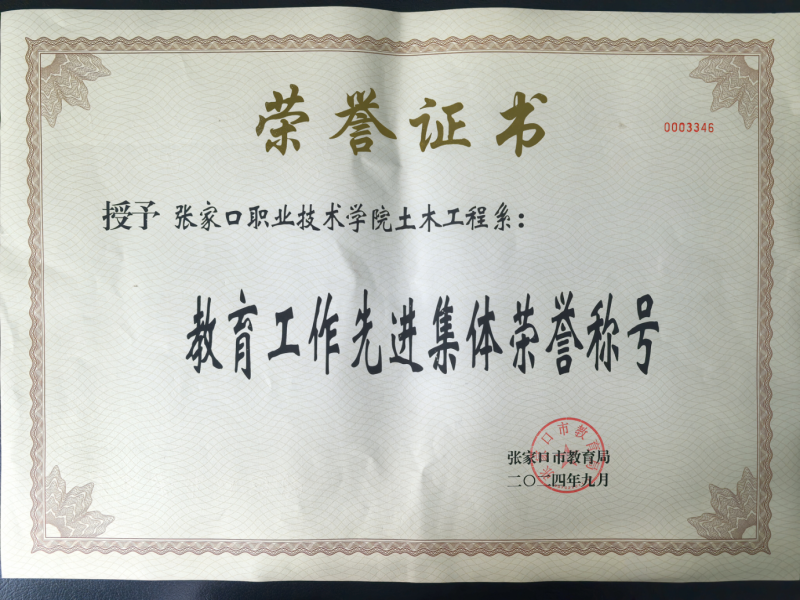 荣誉证书
0003346
授予 张家口职业技术学院土木工程系：
教育工作先进集体荣誉称号
张家口市教育局
二〇二四年九月
张家口市教育局